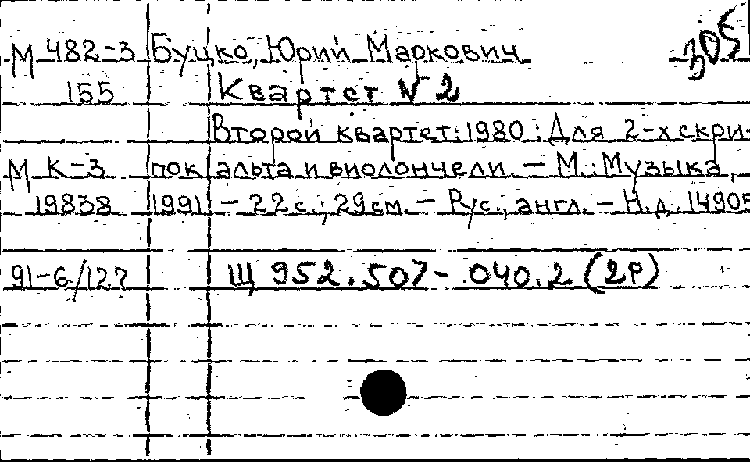 М 482-3 Буцко, Юрий Маркович 305
155 Квартет № 2
Второй квартет: 1980: Для 2-х скри-
М К-3 пок альта и виолончели. – М.: Музыка,
19838 1991 – 22с.; 29см. – Рус., англ. – Н.д. 14905
91-6/127 Щ 952.507-040.2 (2Р)